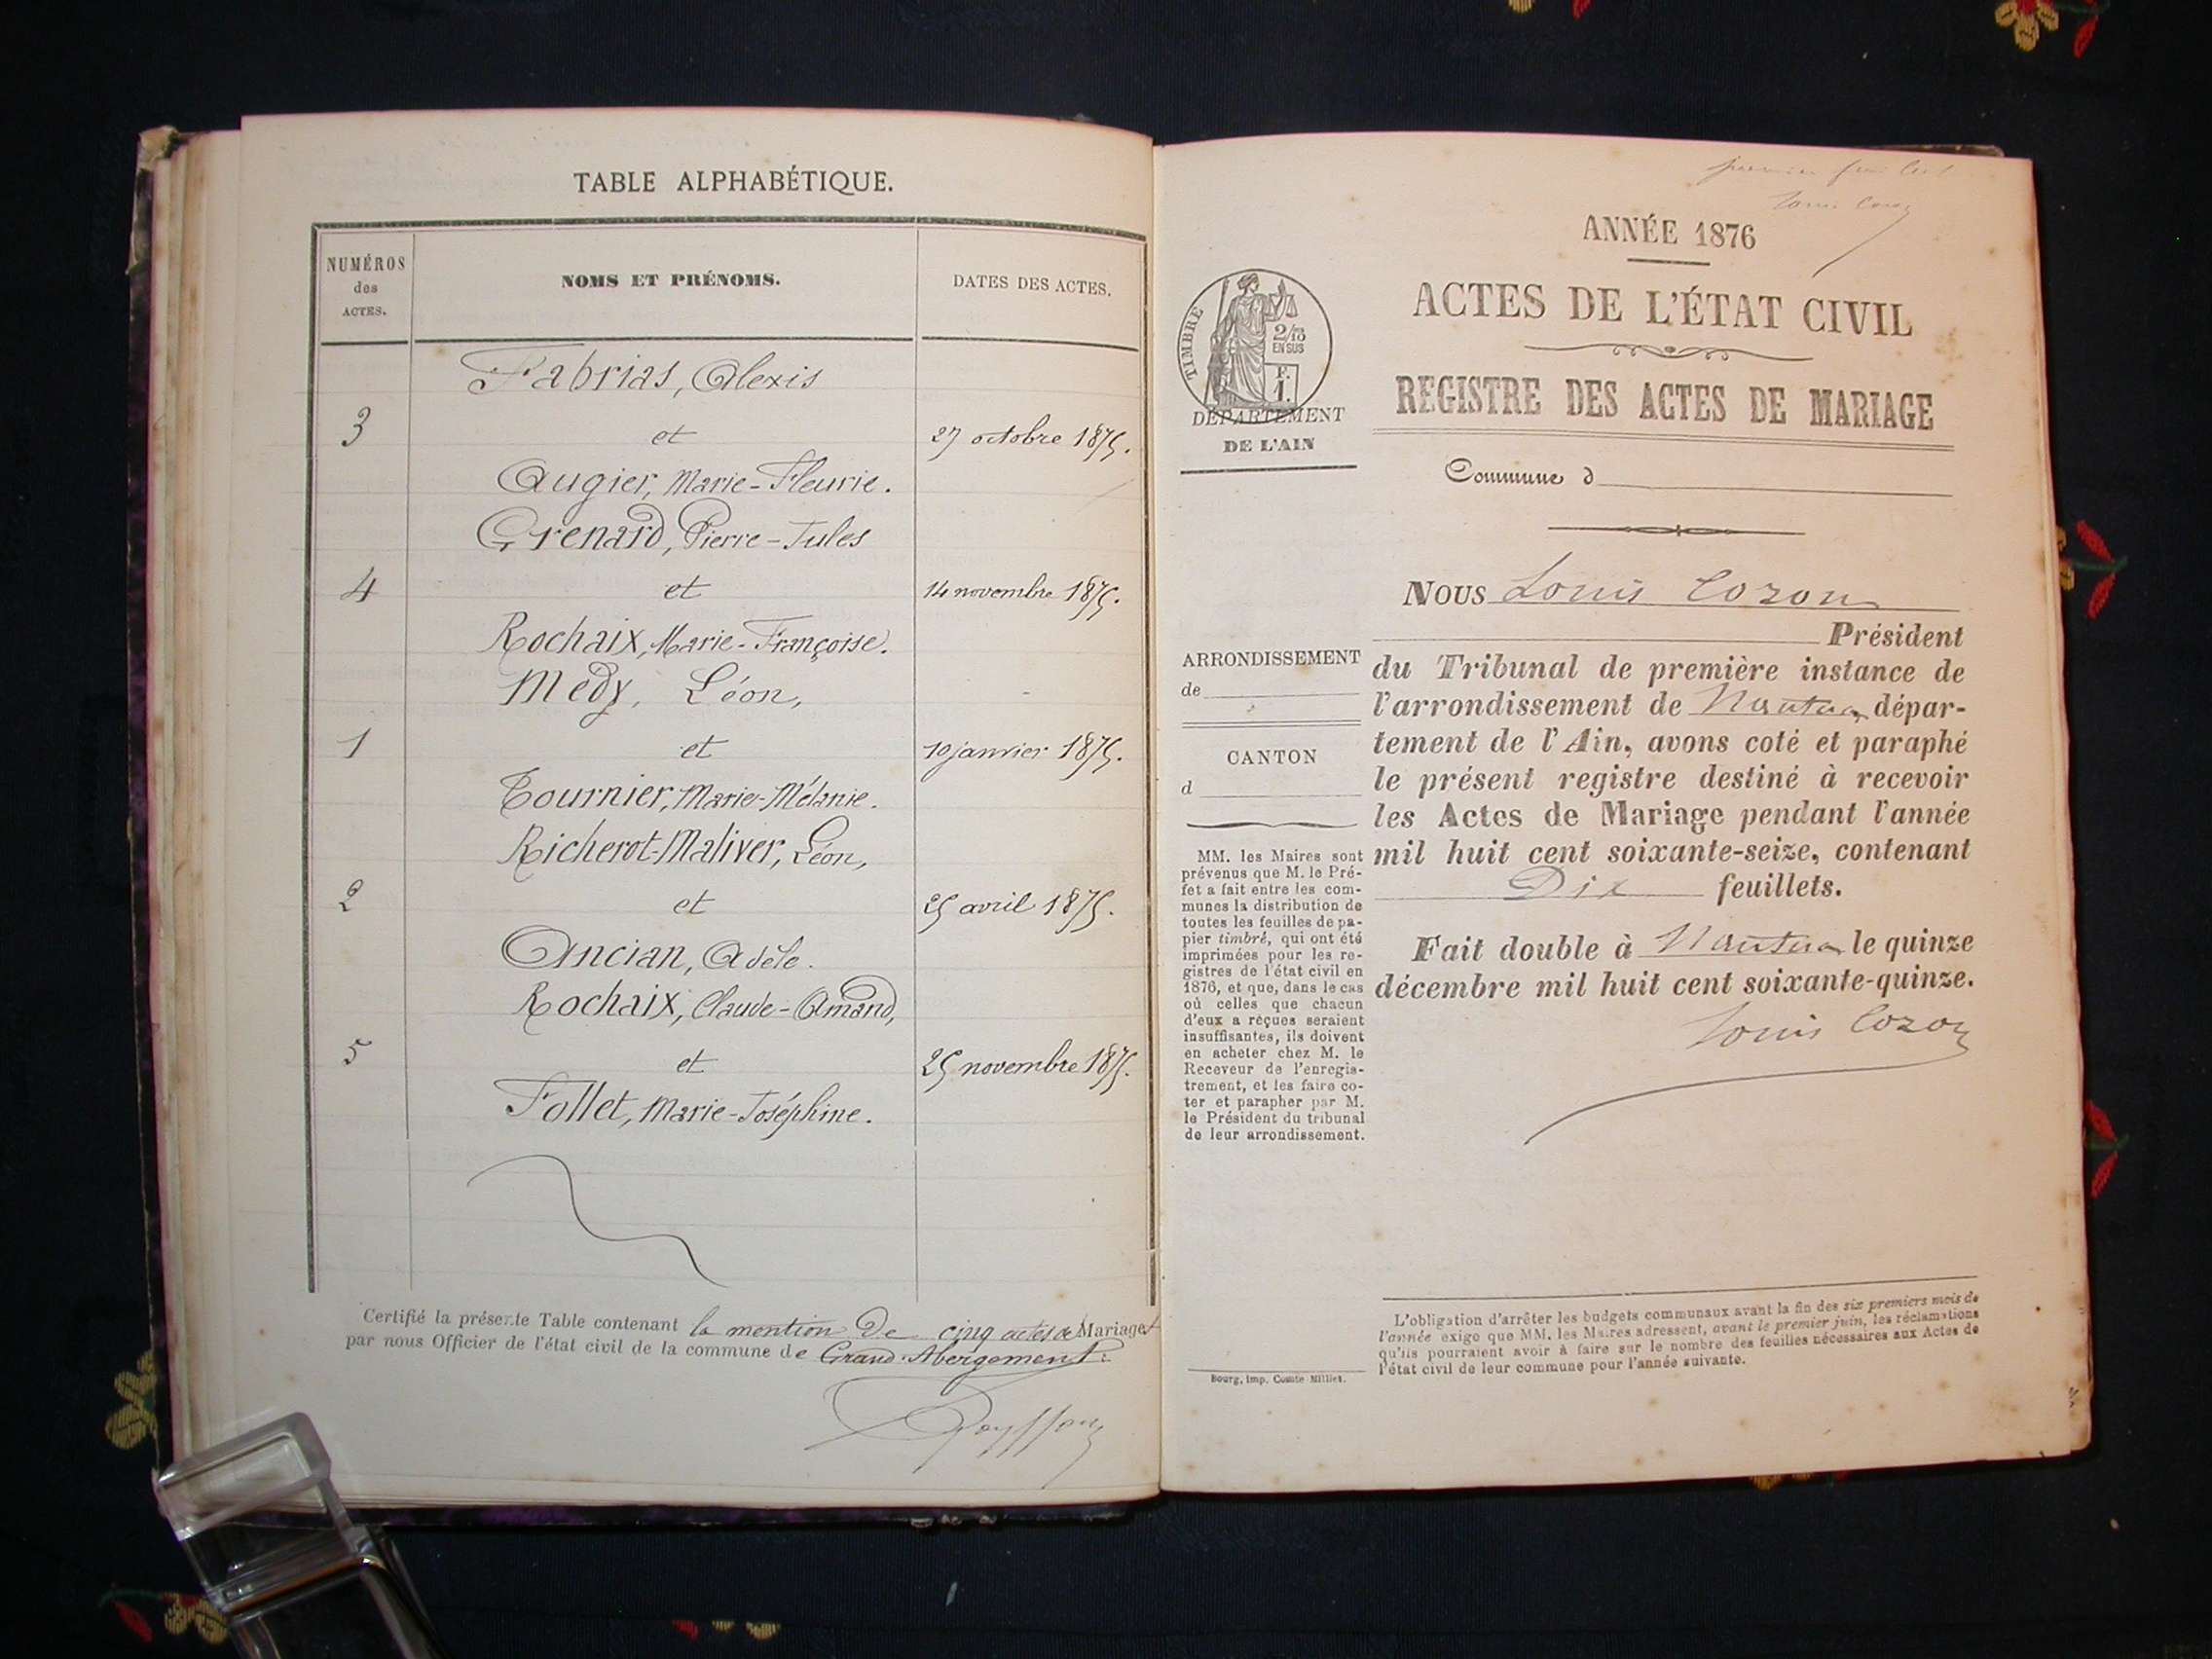 TABLE ALPHABÉTIQUE.
NUMÉROS
des
ACTES.
NOMS ET PRÉNOMS.
DATES DES ACTES.
Fabrias, Alexis
3 et 27 octobre 1875.
Augier, Marie-Fleurie.
Grenard, Pierre-Jules
4 et 14 novembre 1875.
Rochaix, Marie-Françoise.
Médy, Léon,
1 et 10 janvier 1875.
Tournier, Marie-Mélanie.
Richerot-Maliver, Léon,
2 et 25 avril 1875.
Ancian, Adèle.
Rochaix, Claude-Amand,
5 et 25 novembre 1875.
Follet, Marie-Joséphine.
Certifié la présente Table contenant la mention de cinq actes de Mariages
par nous Officier de l'état civil de la commune de Grand-Abergement.
premier feuillet
Louis Cozon
ANNÉE 1876
ACTES DE L'ÉTAT CIVIL
REGISTRE DES ACTES DE MARIAGE
TIMBRE
2/10
EN SUS
F.
1.
DÉPARTEMENT
DE L'AIN
Commune d
Nous Louis Cozon
Président
du Tribunal de première instance de
l'arrondissement de Nantua dépar-
tement de l'Ain, avons coté et paraphé
le présent registre destiné à recevoir
les Actes de Mariage pendant l'année
mil huit cent soixante-seize, contenant
Dix feuillets.
Fait double à Nantua le quinze
décembre mil huit cent soixante-quinze.
Louis Cozon
ARRONDISSEMENT
de
CANTON
d
MM. les Maires sont
prévenus que M. le Pré-
fet a fait entre les com-
munes la distribution de
toutes les feuilles de pa-
pier timbré, qui ont été
imprimées pour les re-
gistres de l'état civil en
1876, et que, dans le cas
où celles que chacun
d'eux a reçues seraient
insuffisantes, ils doivent
en acheter chez M. le
Receveur de l'enregis-
trement, et les faire co-
ter et parapher par M.
le Président du tribunal
de leur arrondissement.
Bourg, imp. Comte Milliet.
L'obligation d'arrêter les budgets communaux avant la fin des six premiers mois de
l'année exige que MM. les Maires adressent, avant le premier juin, les réclamations
qu'ils pourraient avoir à faire sur le nombre des feuilles nécessaires aux Actes de
l'état civil de leur commune pour l'année suivante.